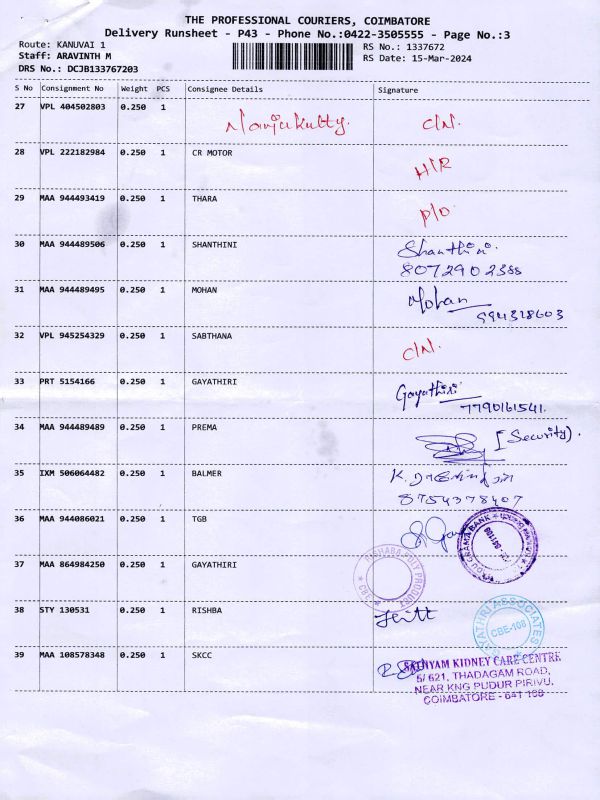 THE PROFESSIONAL COURIERS, COIMBATORE
Delivery Runsheet - P43 - Phone No.:0422-3505555 - Page No.:3
Route: KANUVAI 1 RS No.: 1337672
Staff: ARAVINTH M RS Date: 15-Mar-2024
DRS No.: DCJB133767203
S No Consignment No Weight PCS Consignee Details Signature
27 VPL 404502803 0.250 1 Manjukutty. C/N.
28 VPL 222182984 0.250 1 CR MOTOR H/R
29 MAA 944493419 0.250 1 THARA P/O
30 MAA 944489506 0.250 1 SHANTHINI Shanthini
8072902388
31 MAA 944489495 0.250 1 MOHAN Mohan
994328603
32 VPL 945254329 0.250 1 SABTHANA C/N.
33 PRT 5154166 0.250 1 GAYATHIRI Gayathiri
7790161541.
34 MAA 944489489 0.250 1 PREMA [Security).
35 IXM 506064482 0.250 1 BALMER K.
8754378407
36 MAA 944086021 0.250 1 TGB
GRAMA BANK
37 MAA 864984250 0.250 1 GAYATHIRI
PRODUCT
38 STY 130531 0.250 1 RISHBA
ASSOCIATES
CBE-108
39 MAA 108578348 0.250 1 SKCC
SATHYAM KIDNEY CARE CENTRE
5/ 621, THADAGAM ROAD,
NEAR KNG PUDUR PIRIVU,
COIMBATORE - 641 108